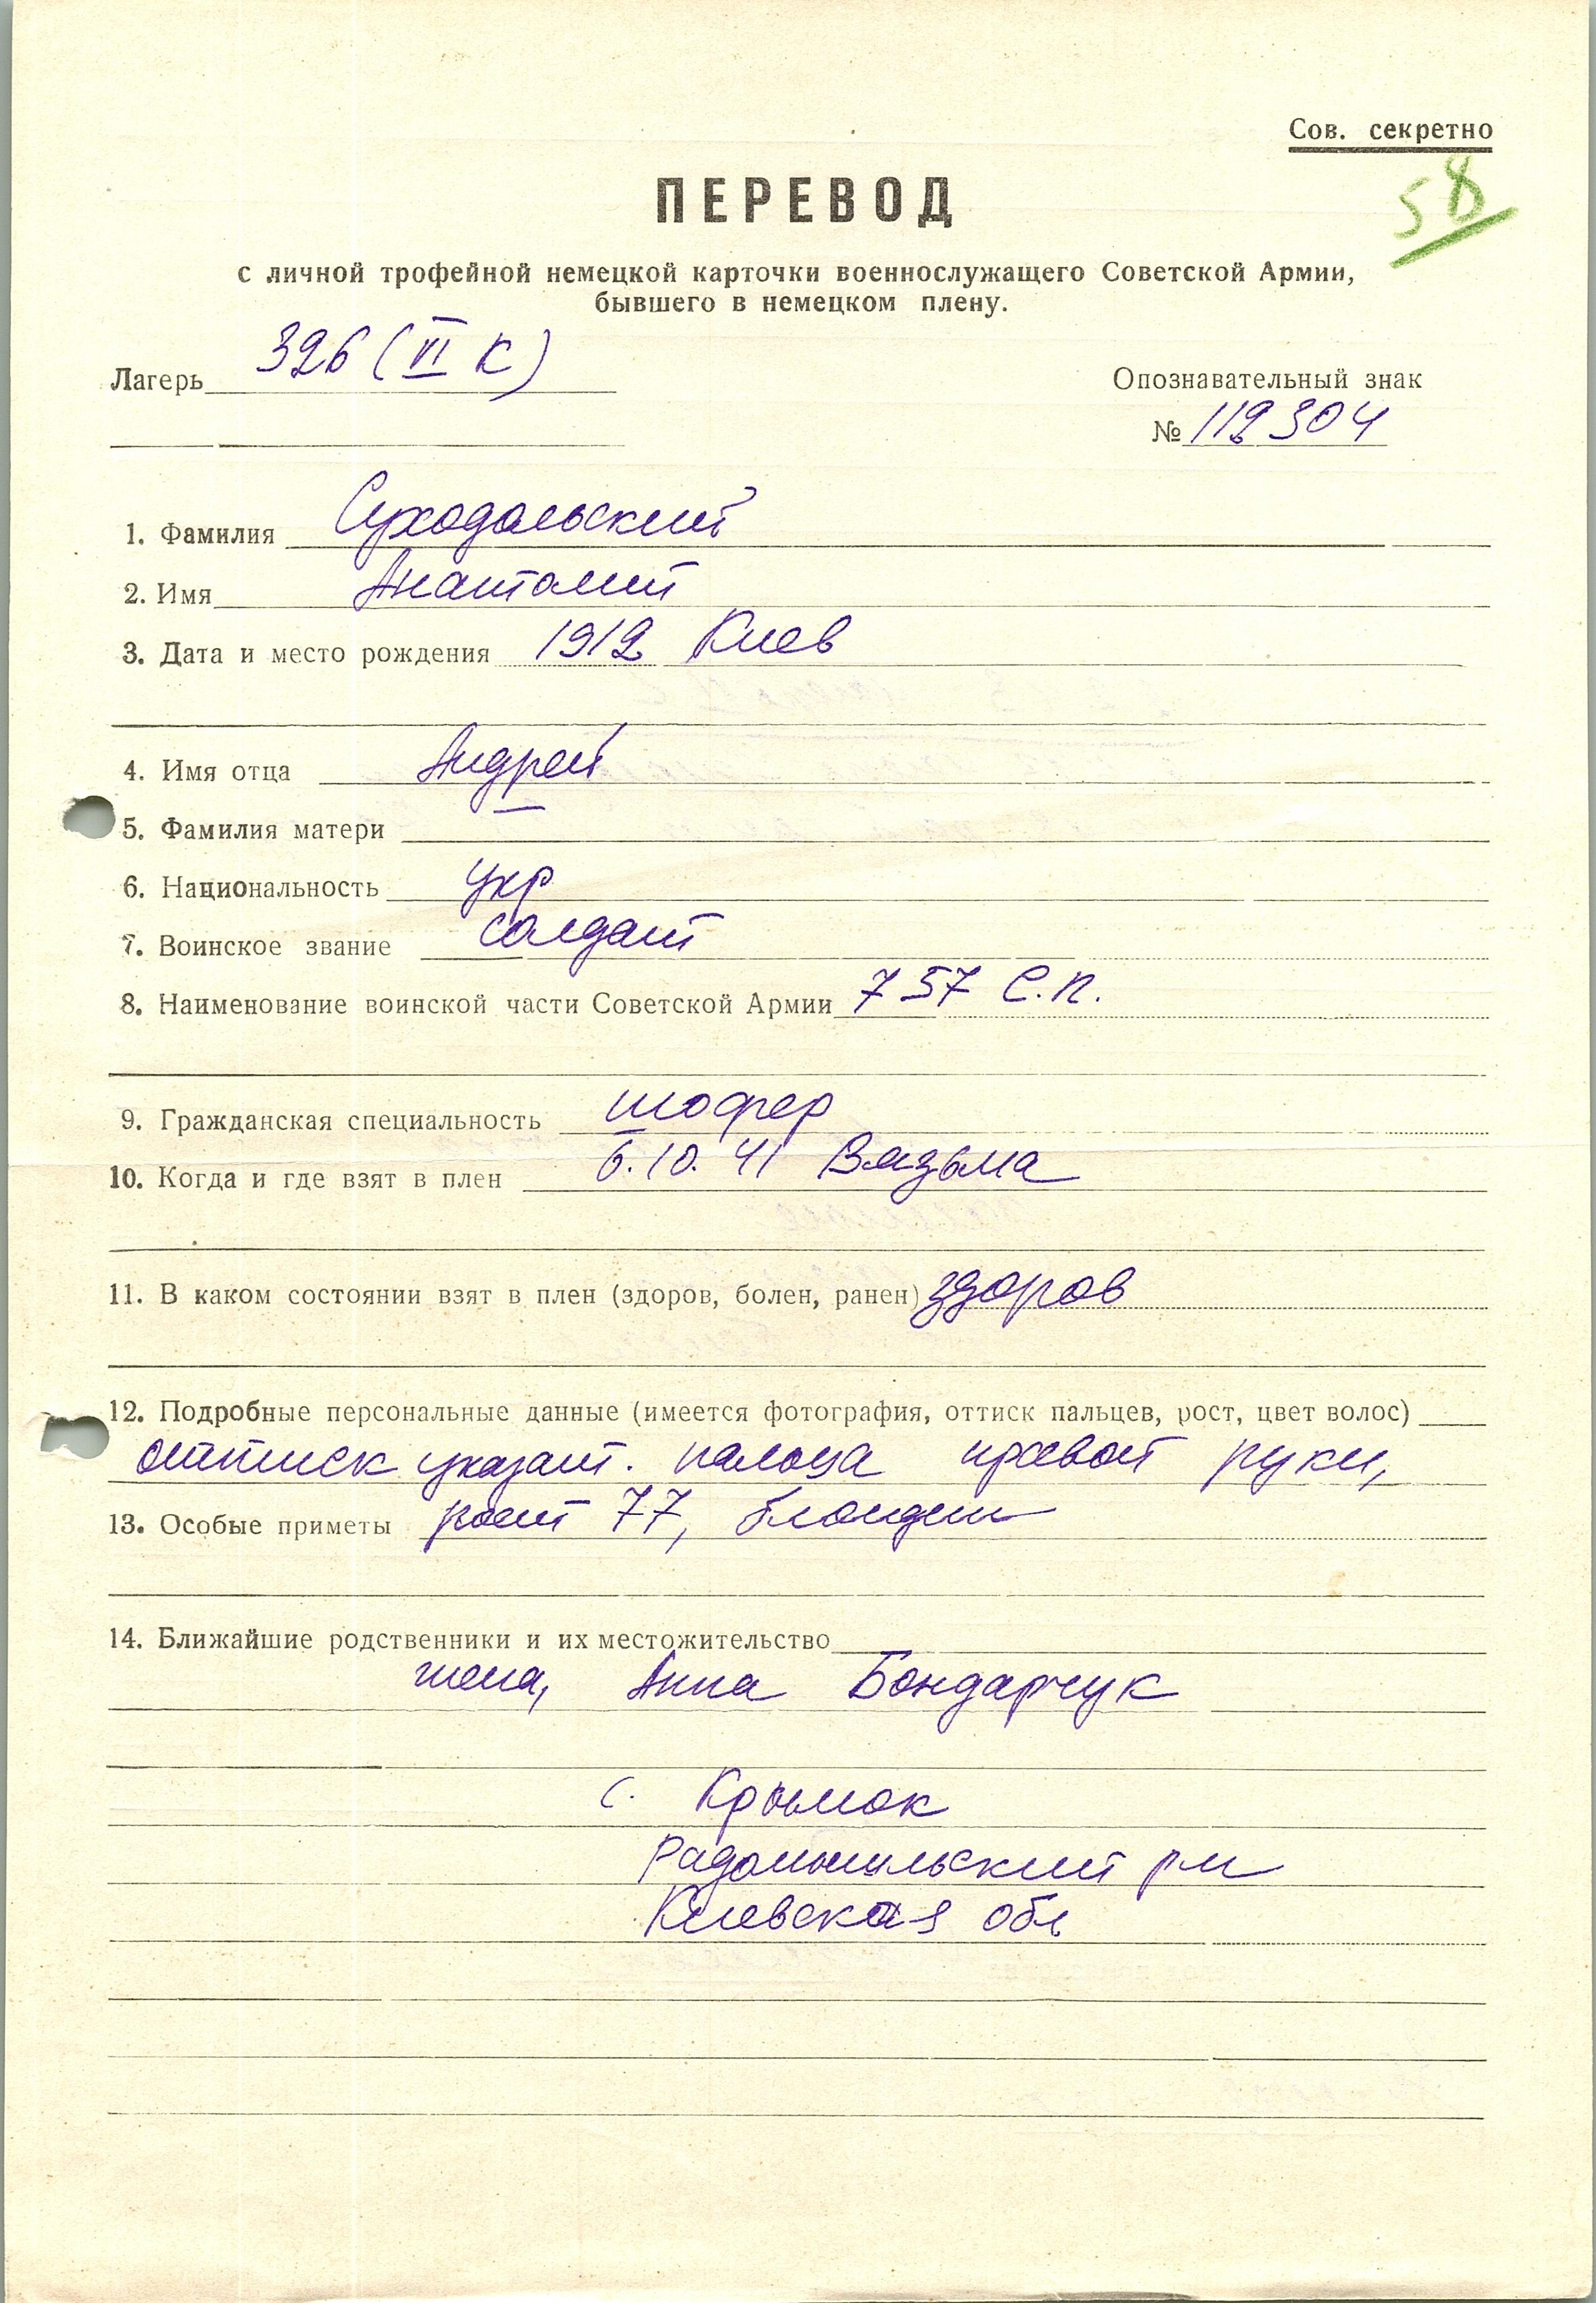 Сов. секретно
58
ПЕРЕВОД
с личной трофейной немецкой карточки военнослужащего Советской Армии,
бывшего в немецком плену.
Лагерь 326 (VI К)
Опознавательный знак
№ 112304
1. Фамилия Суходольский
2. Имя Анатолий
3. Дата и место рождения 1912 Киев
4. Имя отца Андрей
5. Фамилия матери —
6. Национальность укр
7. Воинское звание солдат
8. Наименование воинской части Советской Армии 757 С.п.
9. Гражданская специальность шофер
10. Когда и где взят в плен 6.10.41 Вязьма
11. В каком состоянии взят в плен (здоров, болен, ранен) здоров
12. Подробные персональные данные (имеется фотография, оттиск пальцев, рост, цвет волос)
оттиск указат. пальца правой руки,
13. Особые приметы рост 77, блондин
14. Ближайшие родственники и их местожительство
жена, Анна Бондарчук
с. Крымок
Радомышльский рн
Киевская обл